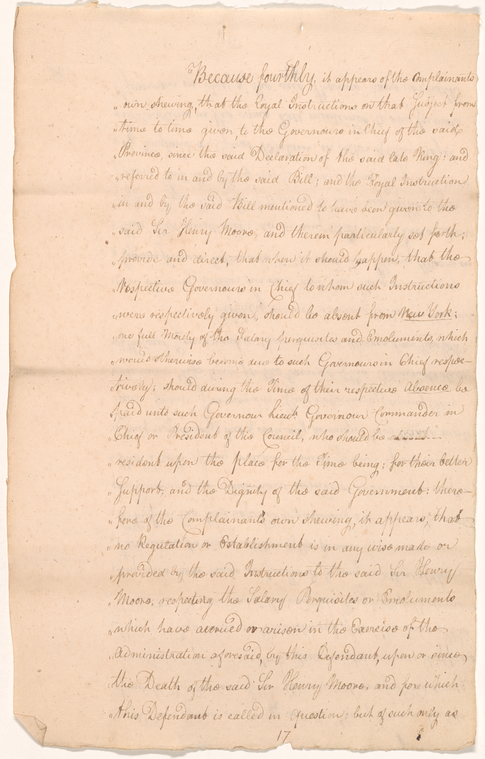 Because fourthly, it appears of the Complainants
" own shewing, that the Royal Instructions on that Subject from
" time to time given, to the Governours in Chief of the said
" Province, since the said Declaration of the said late King; and
" referred to in and by the said Bill; and the Royal Instruction
" in and by the said Bill mentioned to have been given to the
" said Sir Henry Moore, and therein particularly set forth;
" provide and direct, that when it should happen, that, the
" Respective Governours in Chief to whom such Instructions
" were respectively given, should be absent from New York;
" one full Moiety of the Salary perquisites and Emoluments, which
" would otherwise become due to such Governours in Chief respec-
" tively; should during the Time of their respective Absence be
" paid unto such Governour Lieut. Governour Commander in
" Chief or President of the Council, who should be
" resident upon the place for the Time being; for their better
" Support, and the Dignity of the said Government: there-
" fore of the Complainants own shewing, it appears, that
" no Regulation or Establishment is in any wise made or
" provided by the said Instructions to the said Sir Henry
" Moore, respecting the Salary Perquisites or Emoluments
" which have accrued or arisen in the Exercise of the
" Administration aforesaid, by this Defendant, upon or since
" the Death of the said Sir Henry Moore, and for which
" this Defendant is called in Question; but of such only as
17